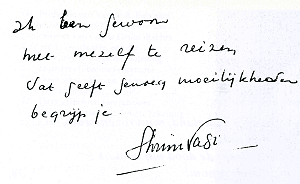 Ik ben gewoon
met mezelf te reizen
dat geeft genoeg moeilijkheden
begrijp je.
Shrinivāsi